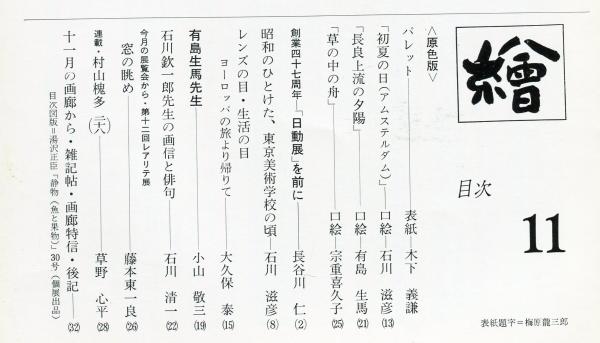 繪
目次
11
表紙題字=梅原龍三郎
〈原色版〉
パレット――表紙 木下 義謙
「初夏の日(アムステルダム)」――口絵―石川 滋彦(13)
「長良上流の夕陽」――口絵―有島 生馬(21)
「草の中の舟」――口絵―宗重喜久子(25)
創業四十七周年「日動展」を前に――長谷川 仁(2)
昭和のひとけた、東京美術学校の頃―石川 滋彦(8)
レンズの目・生活の目
ヨーロッパの旅より帰りて――大久保 泰(15)
有島生馬先生――小山 敬三(19)
石川欽一郎先生の画信と俳句――石川 清一(22)
今月の展覧会から・第十二回レアリテ展
窓の眺め――藤本東一良(26)
連載・村山槐多(二八)――草野 心平(28)
十一月の画廊から・雑記帖・画廊特信・後記――(32)
目次図版=湯沢正臣「静物(魚と果物)」30号(個展出品)